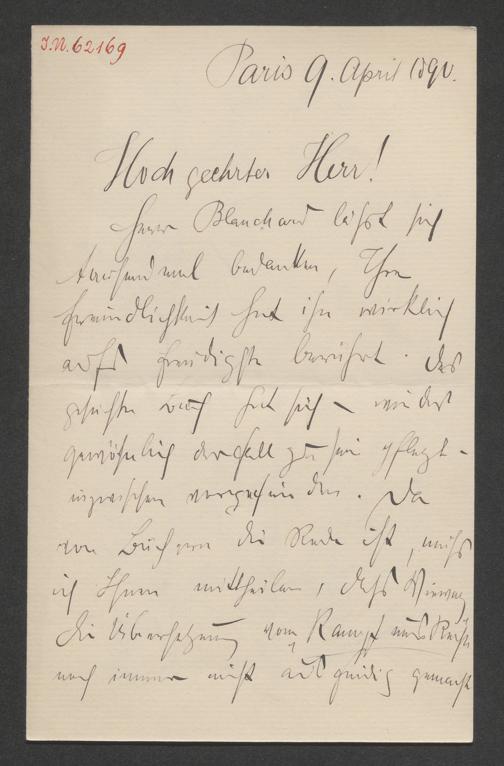 I.N. 62169
Paris 9. April 1890.
Hochgeehrter Herr!
Herr Blanchard läßt sich
tausendmal bedanken, Ihre
Freundlichkeit hat ihn wirklich
aufs freudigste berührt. Das
gesuchte Buch hat sich – wie das
gewöhnlich der Fall zu sein pflegt –
inzwischen vorgefunden. Da
von Büchern die Rede ist, muß
ich Ihnen mittheilen, daß Vieweg
die Übersetzung vom Kampf ums Recht
noch immer nicht ausfindig gemacht